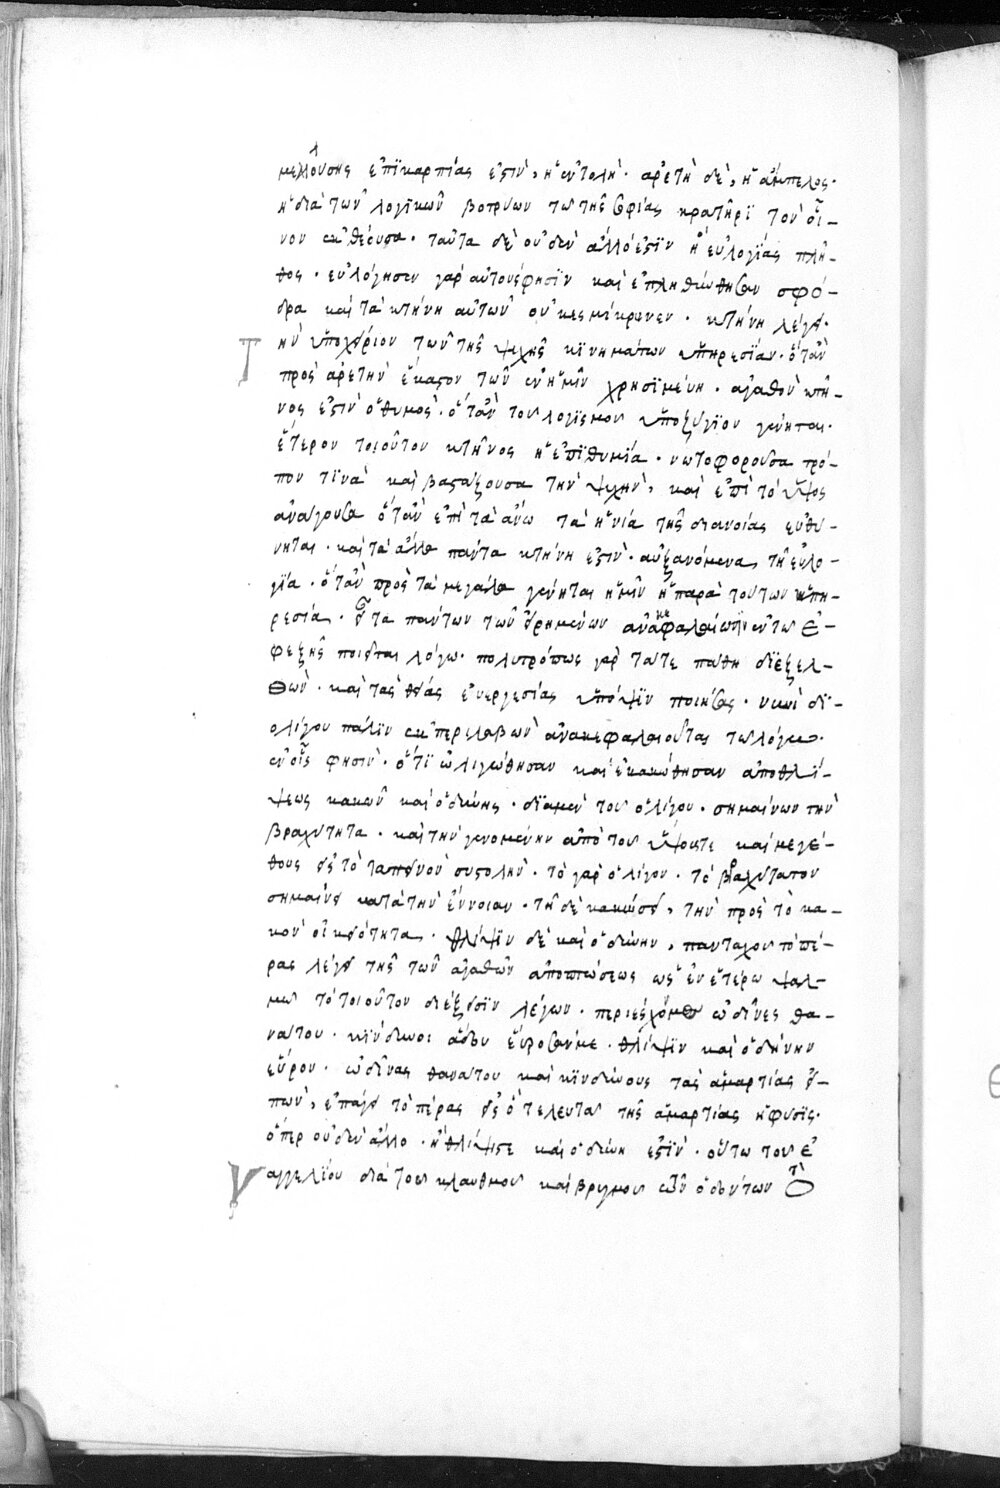 μελλούσης ἐπικαρπίας ἐστὶν, ἡ ἐντολή· ἀρετὴ δὲ, ἡ ἄμπελος·
ἡ διὰ τῶν λογικῶν βοτρύων τῷ τῆς σοφίας κρατῆρϊ τὸν οἶ-
νον ἐκθέουσα· ταῦτα δὲ οὐδὲν ἄλλό ἐστϊν ἢ εὐλογίας πλῆ-
θος· εὐλόγησεν γὰρ αὐτοὺς φησῒν καὶ ἐπληθύνθησαν σφό-
δρα καὶ τὰ κτήνη αὐτῶν οὐκ ἐσμίκρυνεν· κτήνη λέγει·
τὴν ὑποχείριον τῶν τῆς ψυχῆς κϊνημάτων ὑπηρεσίαν· ὅταν
πρὸς ἀρετὴν ἕκαστον τῶν ἐν ἡμῖν χρησϊμεύῃ· ἀγαθὸν κτῆ-
νος ἐστὶν ὁ θυμὸς· ὅταν τοῦ λογϊσμοῦ ὑποζύγϊον γένηται·
ἕτερον τοιοῦτον κτῆνος ἡ ἐπϊθυμία· νωτοφοροῦσα τρό-
πον τϊνὰ καὶ βαστάζουσα τὴν ψυχὴν, καὶ ἐπὶ τὸ ὕψος
ἀνάγουσα ὅταν ἐπὶ τὰ ἄνω τὰ ἡνία τῆς διανοίας εὐθύ-
νηται· καὶ τὰ ἄλλα πάντα κτήνη ἐστὶν· αὐξανόμενα τῇ εὐλο-
γίᾳ· ὅταν πρὸς τὰ μεγάλα γένηται ἡμῖν ἡ παρὰ τούτων ὑπη-
ρεσία· εἶτα πάντων τῶν εἰρημένων ἀνακεφαλαίωσιν ἐν τῷ ἐ-
φεξῆς ποιεῖται λόγῳ· πολυτρόπως γὰρ τά τε πάθη διεξελ-
θὼν· καὶ τὰς θείας εὐεργεσίας ὑπόψϊν ποιήσας· νυνὶ δι'
ὀλίγου πάλϊν ἐκπεριλαβὼν ἀνακεφαλαιοῦται τῷ λόγῳ·
ἐν οἷς φησὶν· ὅτϊ ὠλιγώθησαν καὶ ἐκακώθησαν ἀπὸ θλί-
ψεως κακῶν καὶ ὀδύνης· διὰ μὲν τοῦ ὀλίγου· σημαίνων τὴν
βραχύτητα· καὶ τὴν γενομένην ἀπὸ τοῦ ὕψους τε καὶ μεγέ-
θους εἰς τὸ ταπεινὸν συστολὴν· τὸ γὰρ ὀλίγον· τὸ βραχύτατον
σημαίνει κατὰ τὴν ἔννοιαν· τῇ δὲ κακώσει, τὴν πρὸς τὸ κα-
κὸν οἰκειότητα· θλίψϊν δὲ καὶ ὀδύνην, πανταχοῦ τὸ πέ-
ρας λέγει τῆς τῶν ἀγαθῶν ἀποπτώσεως ὡς ἐν ἑτέρῳ ψαλ-
μῷ τὸ τοιοῦτον διέξεισϊν λέγων· περιέσχόν με ὠδῖνες θα-
νάτου· κίνδυνοι ᾅδου εὕροσάν με· θλίψϊν καὶ ὀδύνην
εὗρον· ὠδῖνας θανάτου καὶ κϊνδύνους τὰς ἁμαρτίας εἰ-
πὼν, ἐπάγει τὸ πέρας εἰς ὃ τελευτᾷ τῆς ἁμαρτίας ἡ φύσϊς·
ὅπερ οὐδὲν ἄλλο· ἢ θλίψίς τε καὶ ὀδύνη ἐστϊν· οὕτω τοῦ ε
υαγγελίου διὰ τοῦ κλαυθμοῦ καὶ βρυγμοῦ τῶν ὀδόντων τὸ